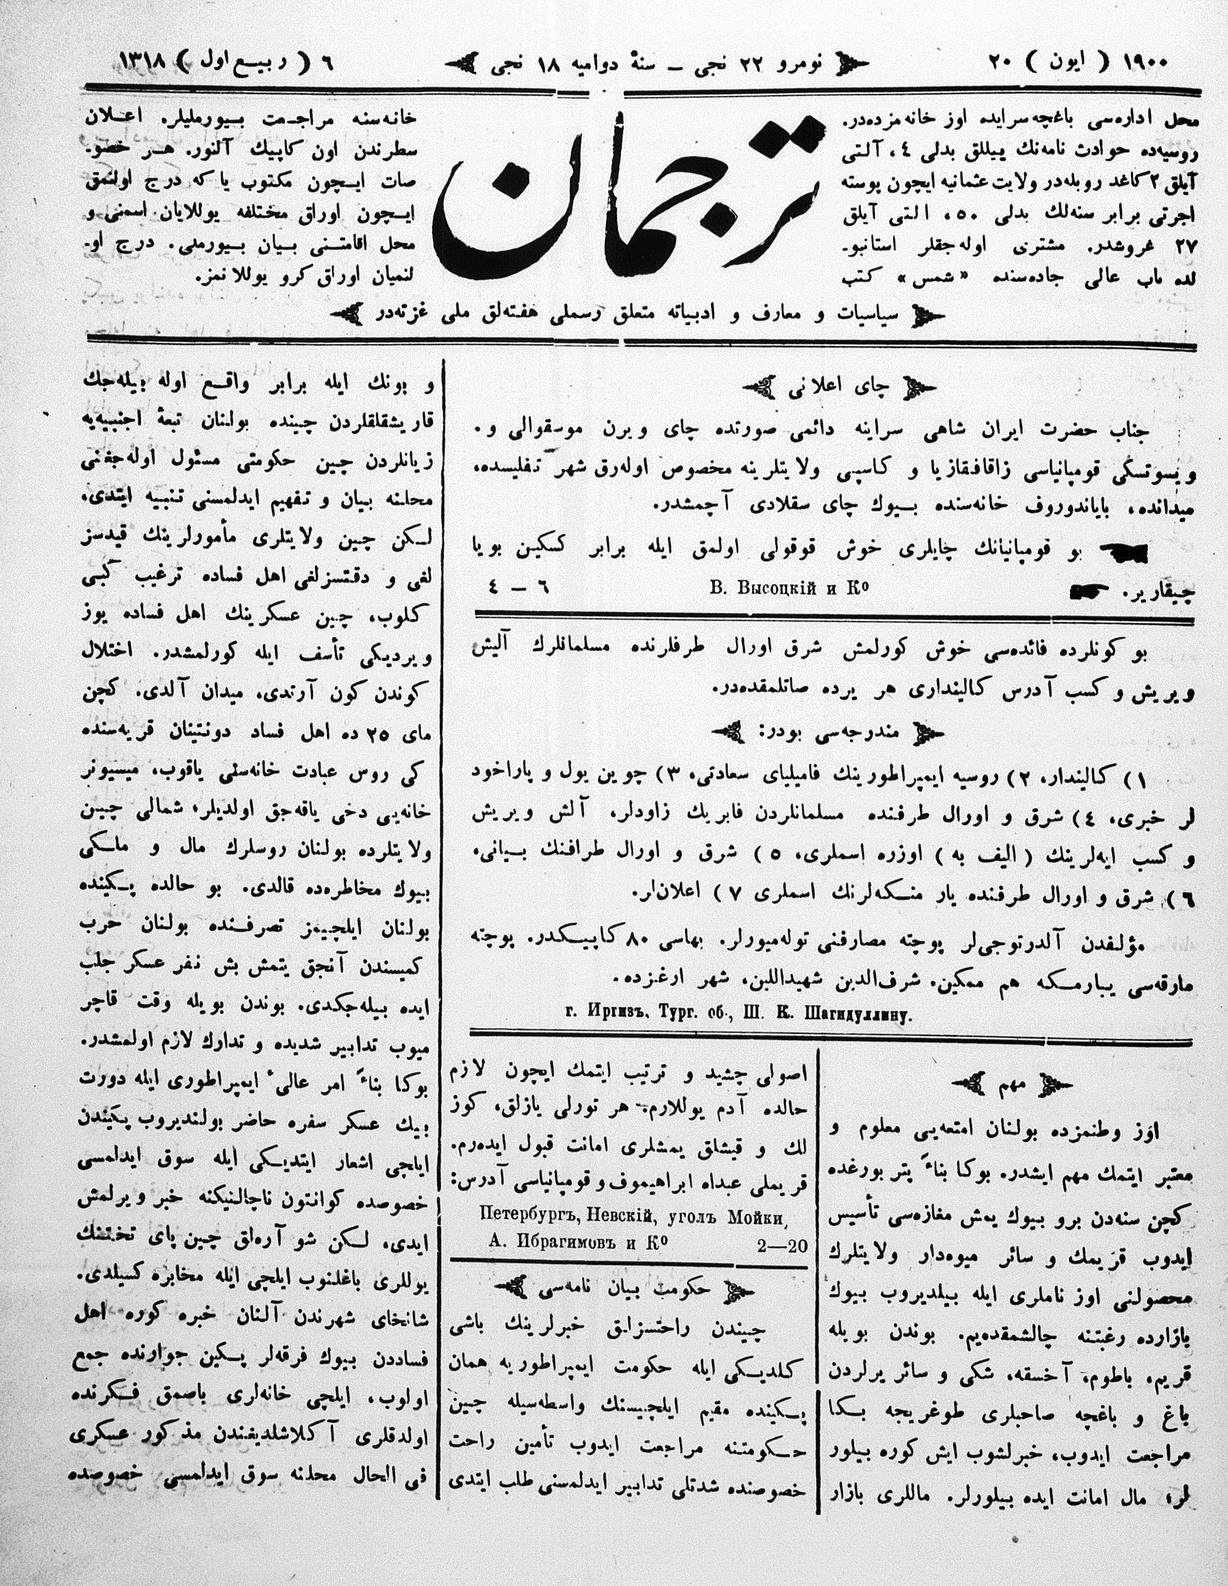 ١٩٠٠ ( ايون ) ٢٠
نومرو ٢٢ نجى ـ سنهٔ دواميه ١٨ نجى
٦ ( ربيع اول ) ١٣١٨
محل اداره‌سى باغچه‌سرايده اوز خانه‌مزده‌در.
روسيه‌ده حوادث نامه‌نك ييللق بدلى ٤، آلتى
آيلق ٢ كاغد روبله‌در ولايت عثمانيه ايچون پوسته
اجرتى برابر سنه‌لك بدلى ٥٠، التى آيلق
٢٧ غروشدر. مشترى اوله‌جقلر استانبو-
لده باب عالى جاده‌سنده «شمس» كتب
ترجمان
خانه‌سنه مراجعت بيورمليلر. اعلان
سطرندن اون كاپيك آلنور. هر خصو-
صات ايچون مكتوب ياكه درج اولنمق
ايچون اوراق مختلفه يوللايان اسمنى و
محل اقامتنى بيان بيورملى. درج او-
لنميان اوراق كرو يوللانمز.
سياسيات و معارف و ادبياته متعلق رسملى هفته‌لق ملى غزته‌در
چاى اعلانى
جناب حضرت ايران شاهى سراينه دائمى صورتده چاى ويرن موسقوالى و.
ويسوتسكى قومپانياسى زاقافقازيا و كاسپى ولايتلرينه مخصوص اوله‌رق شهر تفليسده،
ميدانده، باياندوروف خانه‌سنده بيوك چاى سقلادى آچمشدر.
بو قومپانيانك چايلرى خوش قوقولى اولمق ايله برابر كسكين بويا
چيقارير.
В. Высоцкій и Ко
٦ — ٤
بو كونلرده فائده‌سى خوش كورلمش شرق اورال طرفلرنده مسلمانلرك آليش
ويريش و كسب آدرس كاليندارى هر يرده صاتلمقده‌در.
مندرجه‌سى بودر:
١) كاليندار، ٢) روسيه ايمپراطورينك فاميلياى سعادتى، ٣) چوين يول و پاراخود
لر خبرى، ٤) شرق و اورال طرفنده مسلمانلردن فابريك زاودلر، آلش ويريش
و كسب ايه‌لرينك ( اليف به ) اوزره اسملرى، ٥) شرق و اورال طرافنك بيانى،
٦) شرق و اورال طرفنده يار منكه‌لرنك اسملرى ٧) اعلان‌لر.
مؤلفدن آلدرتوجى‌لر پوچته مصارفنى توله‌ميورلر. بهاسى ٨٠ كاپيكدر. پوچته
مارقه‌سى يبارمكه هم ممكين. شرف‌الدين شهيداللين، شهر ارغزده.
г. Иргизъ, Тург. об., Ш. К. Шагидуллину.
مهم
اوز وطنمزده بولنان امتعه‌يى معلوم و
معتبر ايتمك مهم ايشدر. بوكا بناءً پتر بورغده
كچن سنه‌دن برو بيوك يمش مغازه‌سى تأسيس
ايدوب قريمك و سائر ميوه‌دار ولايتلرك
محصولنى اوز ناملرى ايله بيلديروب بيوك
بازارده رغبتنه چالشمقده‌يم. بوندن بويله
قريم، باطوم، آخسقه، شكى و سائر يرلردن
باغ و باغچه صاحبلرى طوغريجه بكا
مراجعت ايدوب، خبرلشوب ايش كوره بيلور
لر، مال امانت ايده بيلورلر. ماللرى بازار
اصولى چشيد و ترتيب ايتمك ايچون لازم
حالده آدم يوللارم. هر تورلى يازلق، كوز
لك و قيشلق يمشلرى امانت قبول ايده‌رم.
قريملى عبداه ابراهيموف و قومپانياسى آدرس:
Петербургъ, Невскій, уголъ Мойки,
А. Ибрагимовъ и Ко 2—20
حكومت بيان نامه‌سى
چيندن راحتسزلق خبرلرينك باشى
كلديكى ايله حكومت ايمپراطوريه همان
پكينده مقيم ايلچيسنك واسطه‌سيله چين
حكومتنه مراجعت ايدوب تأمين راحت
خصوصنده شدتلى تدابير ايدلمسنى طلب ايتدى
و بونك ايله برابر واقع اوله بيله‌جك
قاريشقلقلردن چينده بولنان تبعهٔ اجنبيه‌يه
زيانلردن چين حكومتى مسئول اوله‌جغنى
محلنه بيان و تفهيم ايدلمسنى تنبيه ايتدى.
لكن چين ولايتلرى مأمورلرينك قيدسز
لغى و دقتسزلغى اهل فساده ترغيب كبى
كلوب، چين عسكرينك اهل فساده يوز
ويرديكى تأسف ايله كورلمشدر. اختلال
كوندن كون آرتدى، ميدان آلدى. كچن
ماى ٢٥ ده اهل فساد دونتينان قريه‌سنده
كى روس عبادت خانه‌سنى ياقوب، ميسيونر
خانه‌يى دخى ياقه‌جق اولديلر؛ شمالى چين
ولايتلرده بولنان روسلرك مال و ملكى
بيوك مخاطره‌ده قالدى. بو حالده پكينده
بولنان ايلچيمز تصرفنده بولنان حرب
كميسندن آنجق يتمش بش نفر عسكر جلب
ايده بيله‌جكدى. بوندن بويله وقت قاچر
ميوب تدابير شديده و تدارك لازم اولمشدر.
بوكا بناءً امر عالىٔ ايمپراطورى ايله دورت
بيك عسكر سفره حاضر بولنديروب پكيندن
ايلچى اشعار ايتديكى ايله سوق ايدلمسى
خصوصده كوانتون ناچالنيكنه خبر ويرلمش
ايدى، لكن شو آره‌لق چين پاى تختنك
يوللرى باغلنوب ايلچى ايله مخابره كسيلدى.
شانخاى شهرندن آلنان خبره كوره اهل
فساددن بيوك فرقه‌لر پكين جوارنده جمع
اولوب، ايلچى خانه‌لرى باصمق فكرنده
اولدقلرى آكلاشلديغندن مذكور عسكرى
فى الحال محلنه سوق ايدلمسى خصوصده